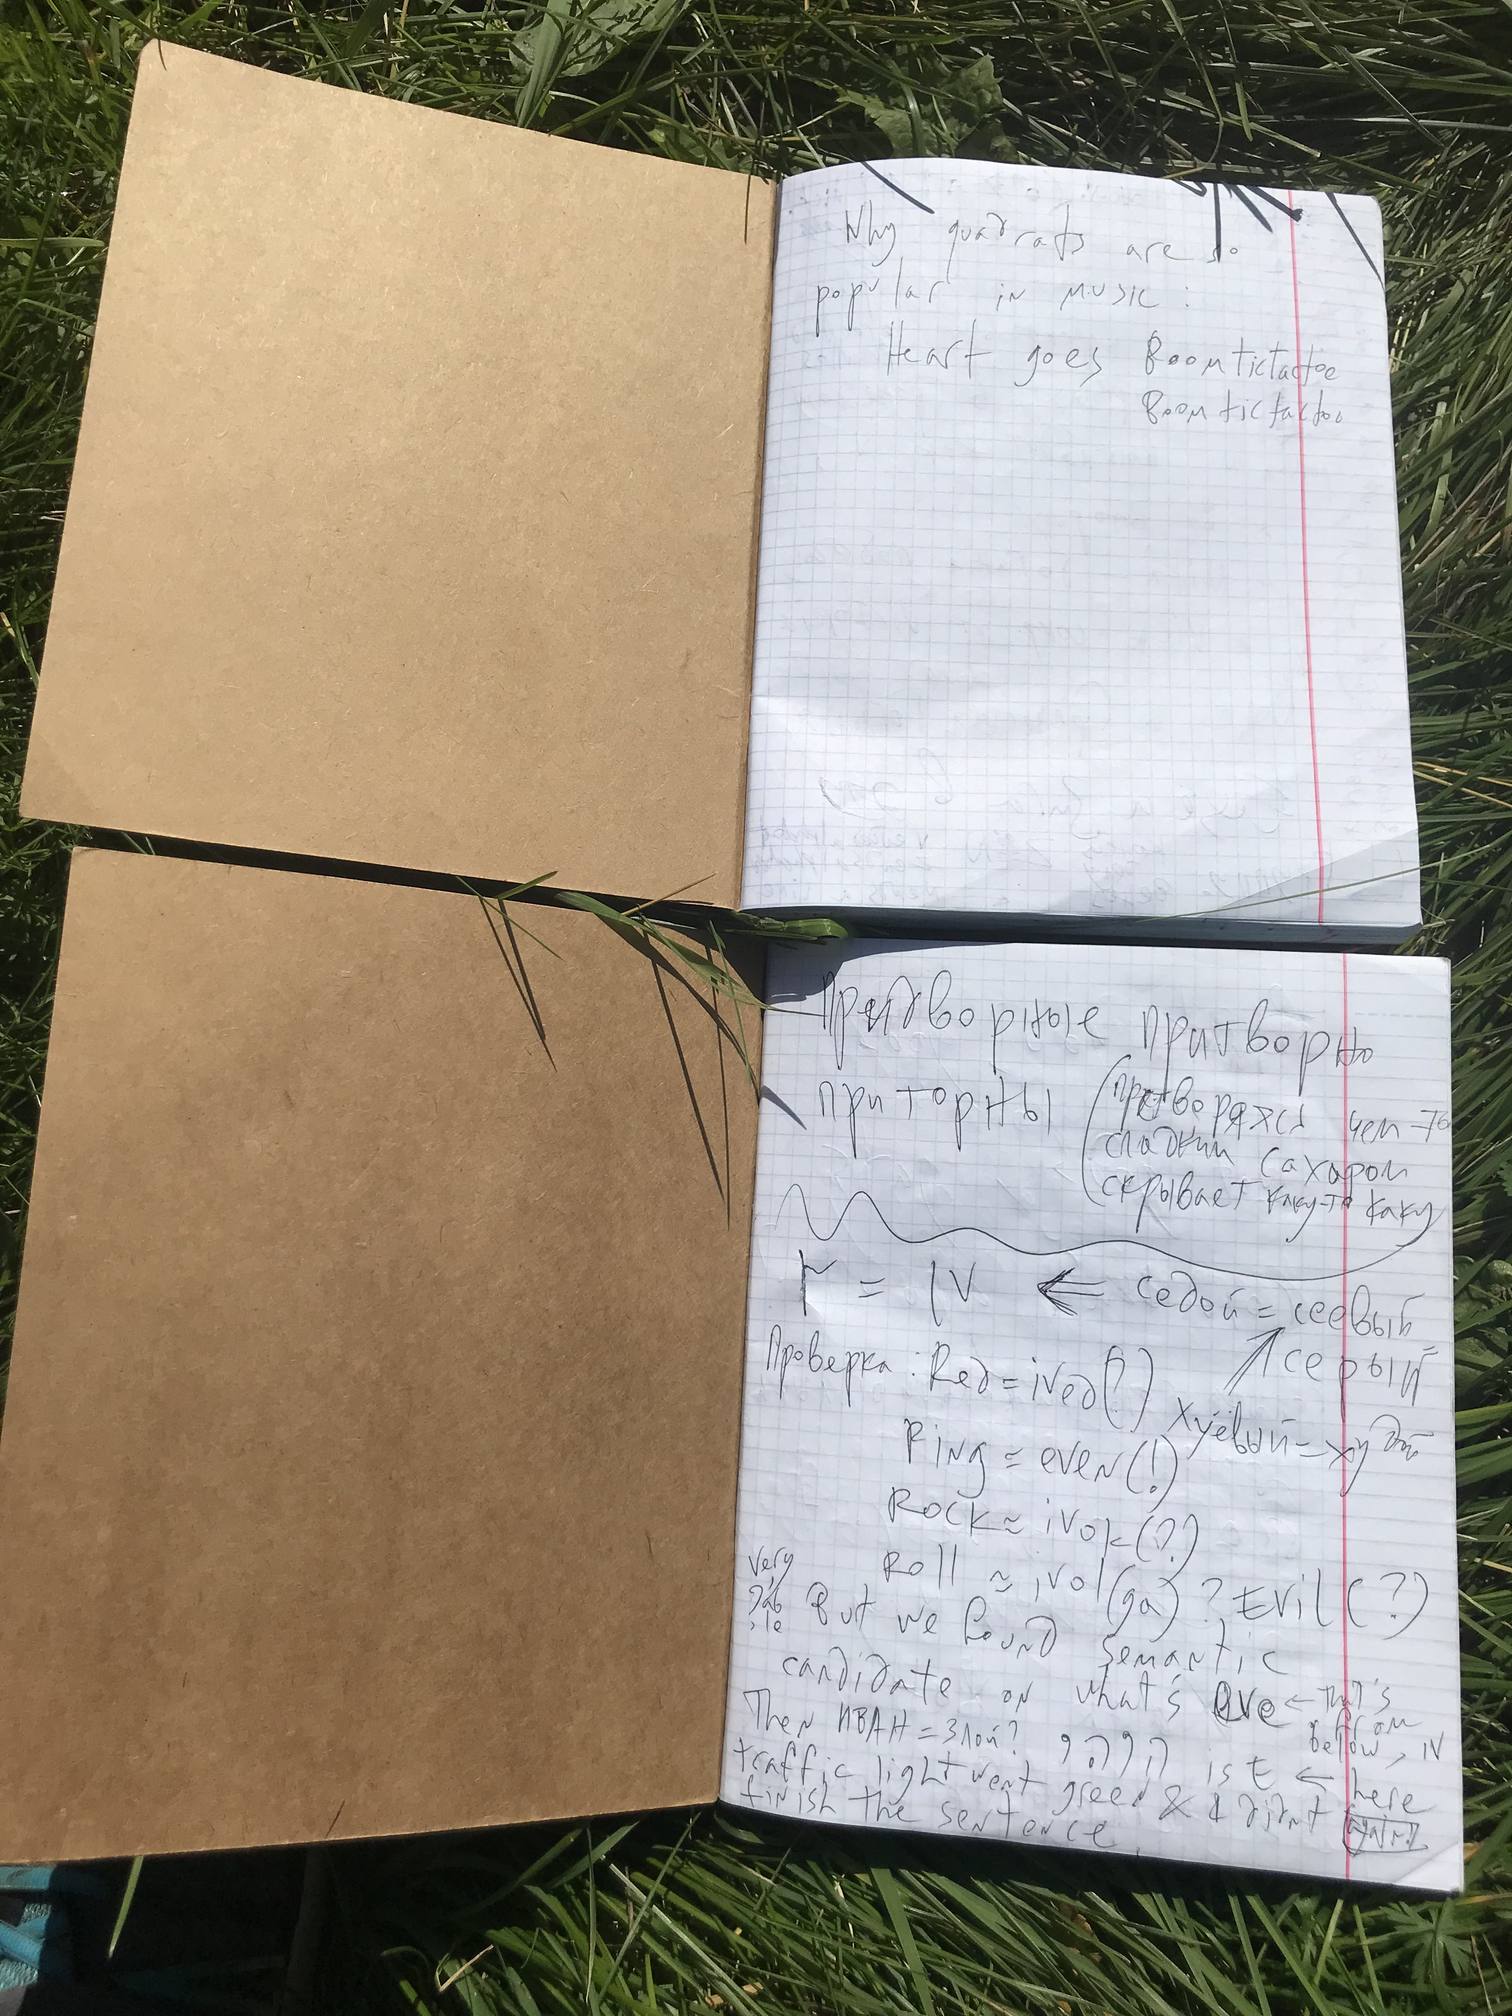 Why quadrats are so
popular in music :
Heart goes Boomtictactoe
Boomtictactoo
Придворные притворно
приторны
(притворяясь чем-то
сладким сахаром
скрывает каку-то каку
r = IV ← седой = сеевый
серый
Проверка : Red = ived(?)
хуёвый = худой
Ring = even(!)
Rock ≈ ivok(?)
Roll ≈ ivol(ga) ? Evil(?)
very
But we found semantic
candidate on what's eve ← that's
below, IV
Then ИВАН = Злой?
is E ← here
traffic light went green & I didnt
finish the sentence